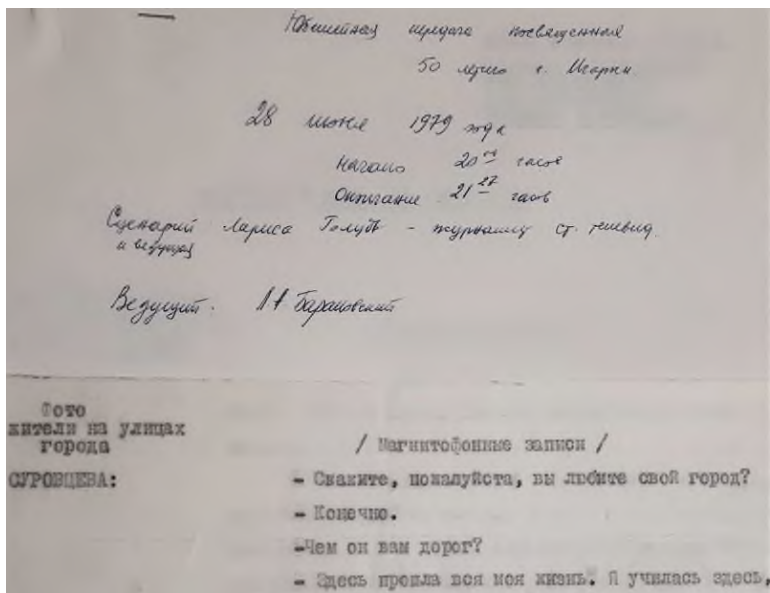 Юбилейная передача посвященная
50 летию г. Игарки
28 июня 1979 года
Начало 20 00 часов
Окончание 21 27 часов
Сценарий Лариса Голубь - журналист ст. телевид.
и ведущая
Ведущий. Барановский
Фото
жители на улицах
города
/ Магнитофонные записи /
СУРОВЦЕВА:
- Скажите, пожалуйста, вы любите свой город?
- Конечно.
-Чем он вам дорог?
- Здесь прошла вся моя жизнь. Я училась здесь,